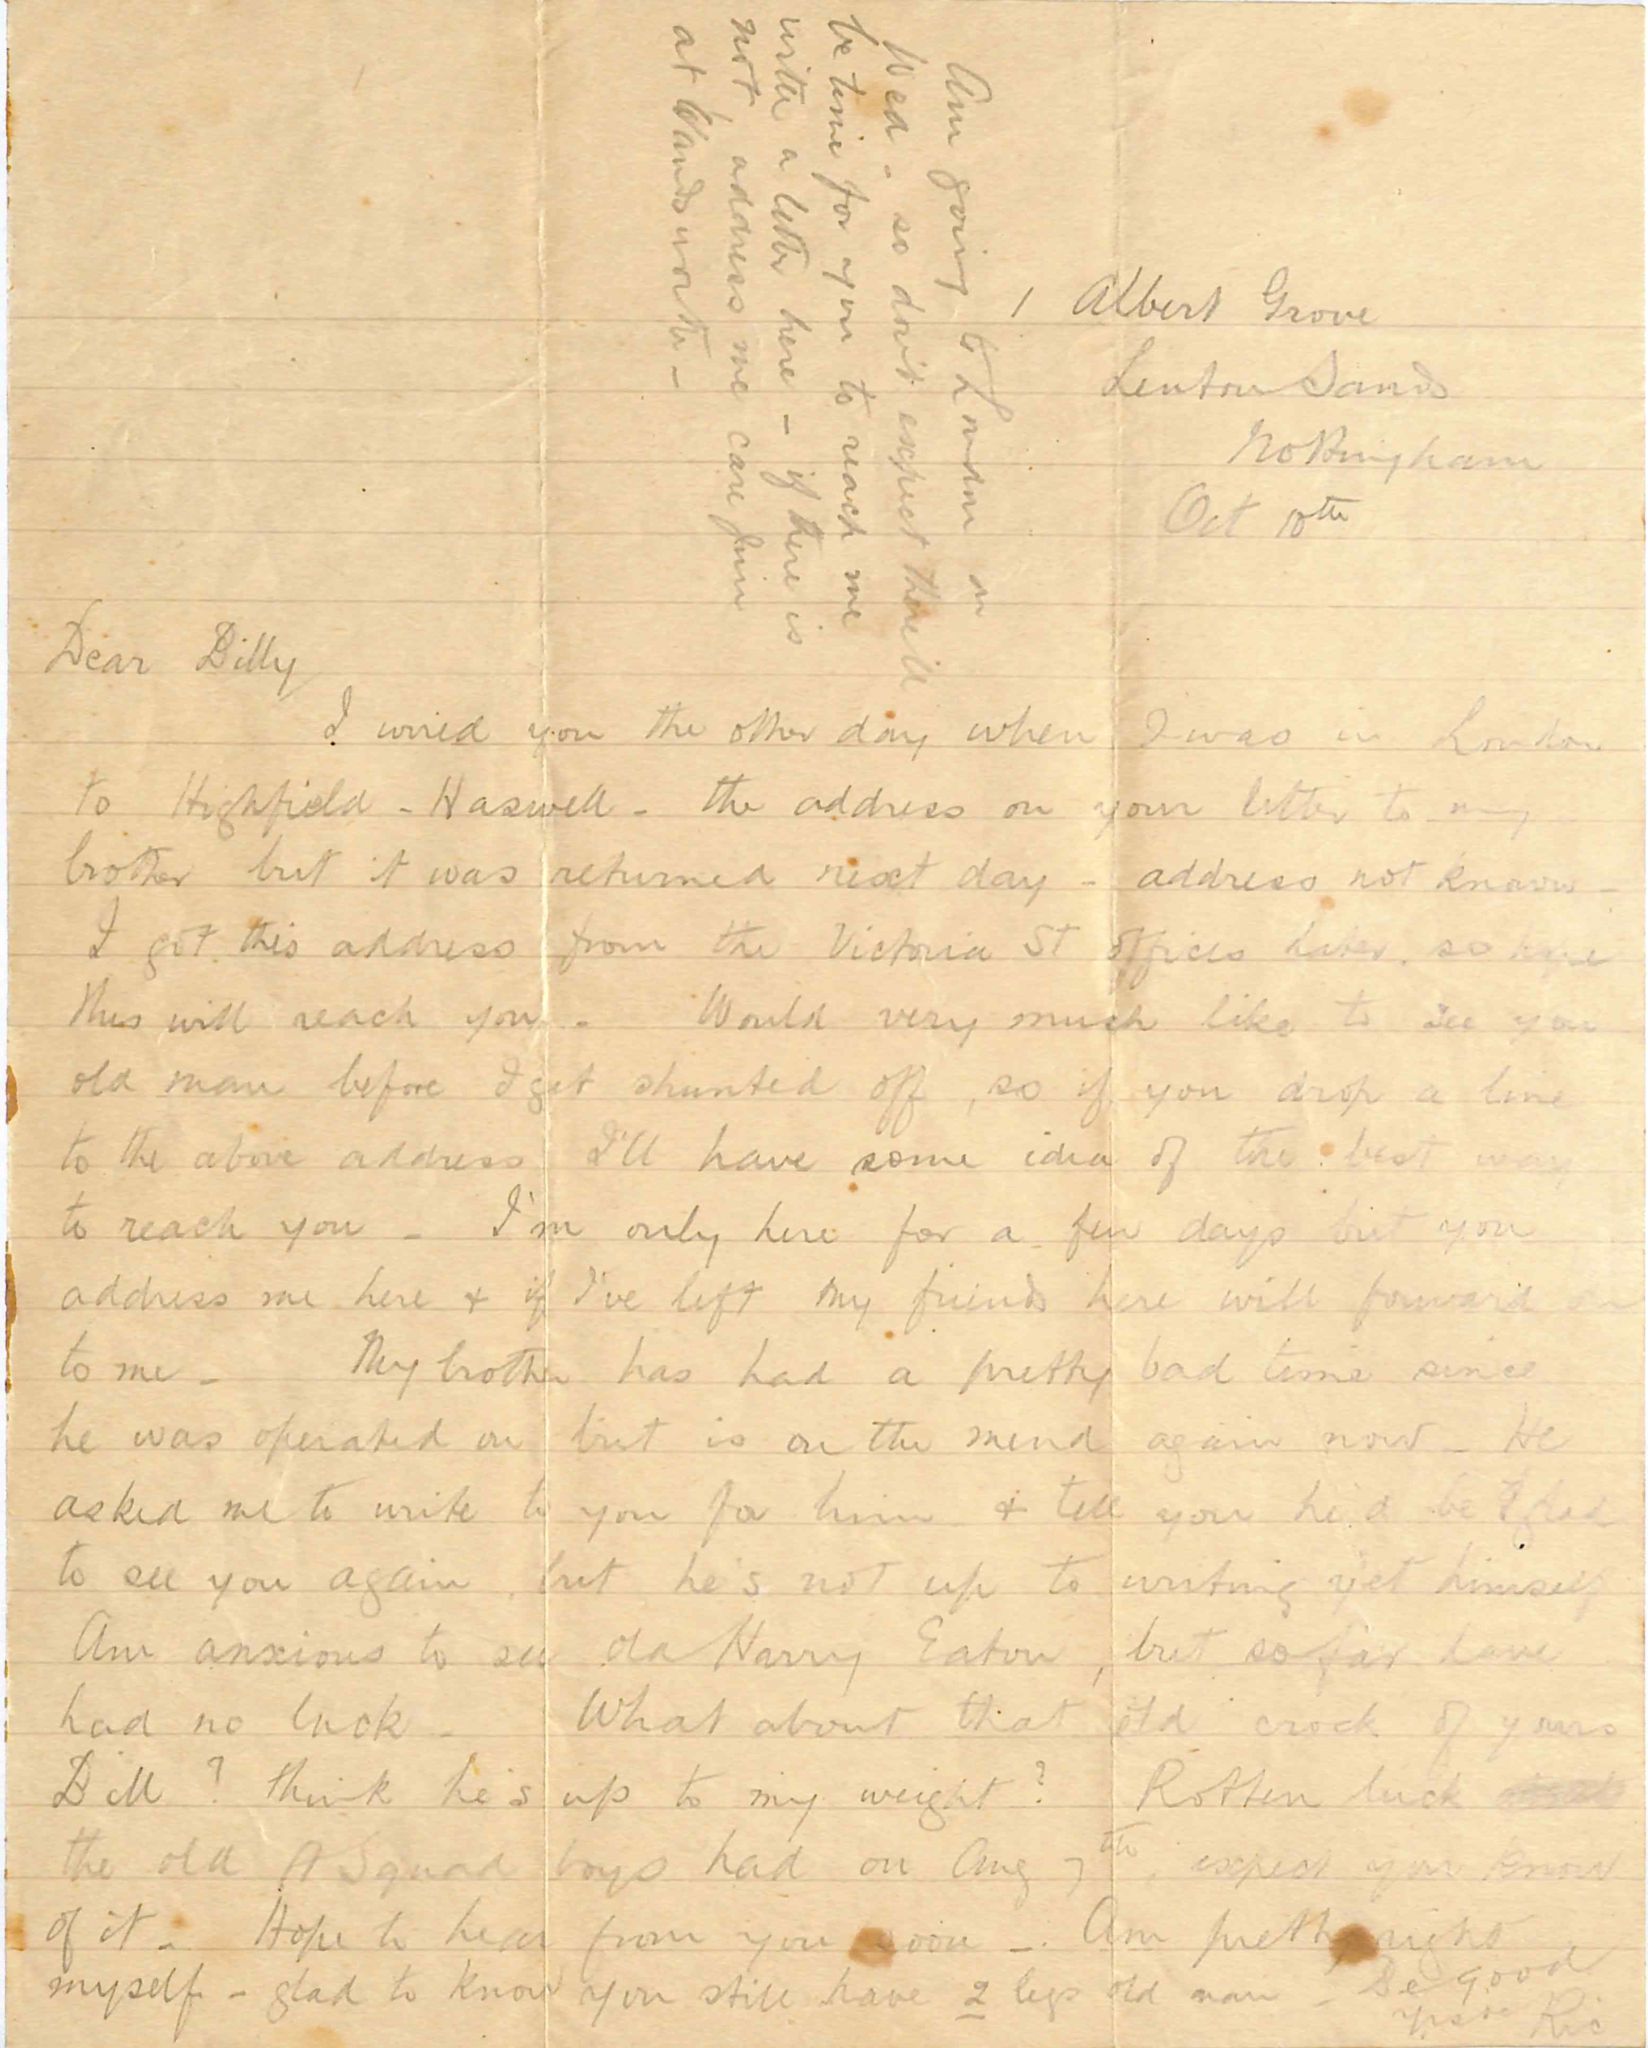 1 Albert Grove
Lenton Sands
Nottingham
Oct 10th
Dear Billy
I wired you the other day when I was in London
to Highfield - Haswell - the address on your letter to my
brother but it was returned next day - address not known -
I got this address from the Victoria St offices later. so hope
this will reach you - Would very much like to see you
old man before I get shunted off, so if you drop a line
to the above address I'll have some idea of the best way
to reach you - I'm only here for a few days but you
address me here & if I've left my friends here will forward on
to me - My brother has had a pretty bad time since
he was operated on but is on the mend again now - He
asked me to write to you for him & tell you he'd be glad
to see you again, but he's not up to writing yet himself
Am anxious to see old Harry Eaton, but so far have
had no luck - What about that old crock of yours
Bill? think he's up to my weight? Rotten luck
the old A Squad boys had on Aug 7th, expect you know
of it - Hope to hear from you soon - Am pretty right
myself - glad to know you still have 2 legs old man - Be good
Ric
Am going to London on
Wed - so don't expect there'll
be time for you to reach me
with a letter here - if there is
not address me care Jim
at Wandsworth -